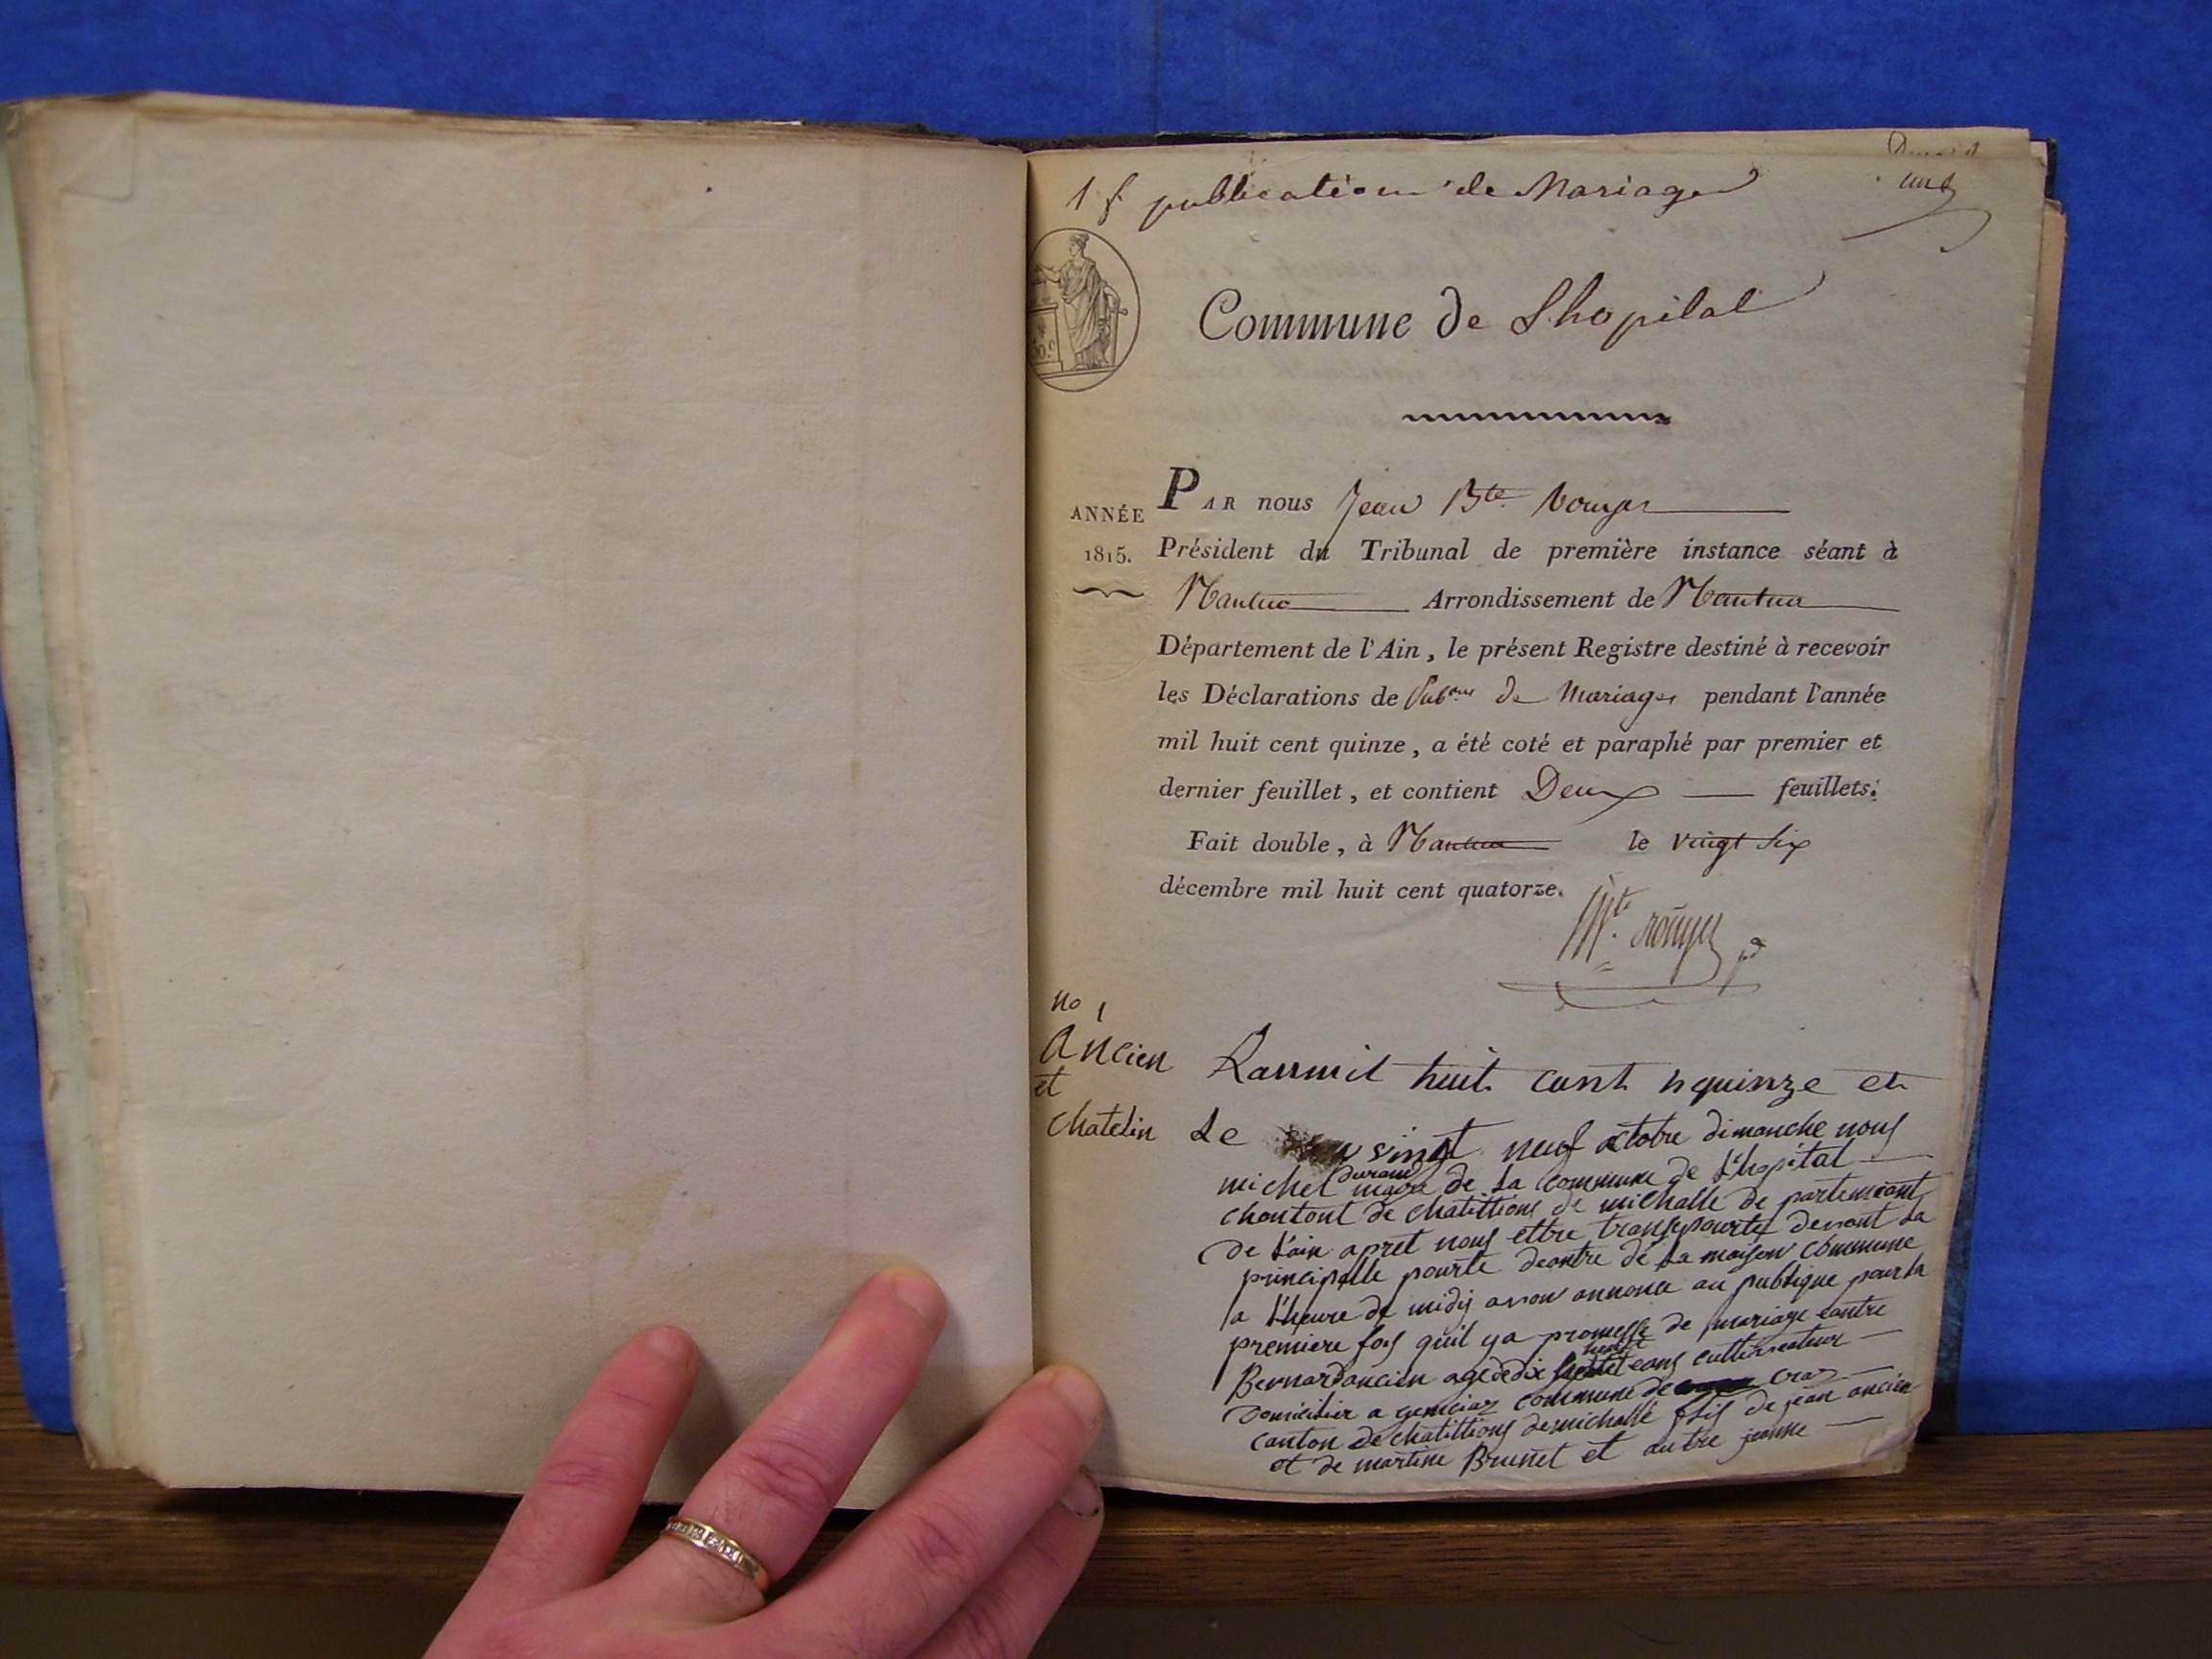 1 f. publication de Mariage
une
Commune de Lhopital
ANNÉE
1815.
PAR nous Jean Bte. rouyer
Président du Tribunal de première instance séant à
Nantua Arrondissement de Nantua
Département de l'Ain, le présent Registre destiné à recevoir
les Déclarations de Pubons de Mariages pendant l'année
mil huit cent quinze, a été coté et paraphé par premier et
dernier feuillet, et contient Deux feuillets.
Fait double, à Nantua le vingt six
décembre mil huit cent quatorze.
rouyer pd
no 1
Ancien
et
Chatelin
Lanmil huit cent nquinze et
Le vingt neuf octobre dimanche nous
michel durand maire de La Commune de L'hopital
chontont de chatittions de michalle de partemeant
de L'ain apret nous ettre transepourtes devant La
principalle pourte deantre de La maison commune
a L'heure de midis avon annoncé au publique pour La
premiere fois quil ya promesse de mariage eantre
Bernard ancien agé de dix neufe eans culltivateur
Domicilier a gemciaz commune de craz
canton de chatittions de michalle fils de jean ancien
et de martine Brunet et autre jeanne